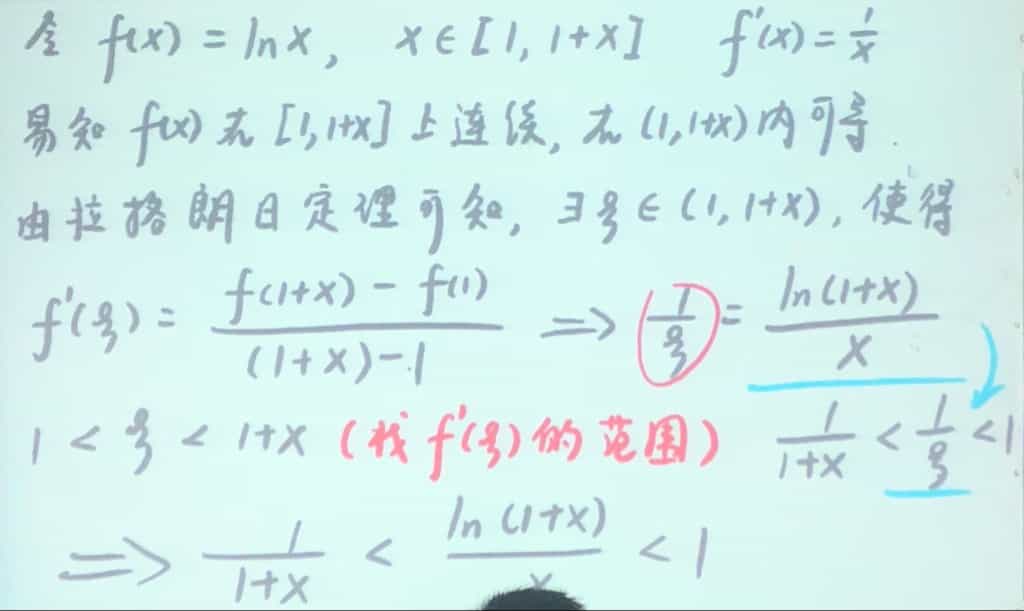 令 f(x) = ln x, x ∈ [1, 1+x] f'(x) = 1/x
易知 f(x) 在 [1, 1+x] 上连续, 在 (1, 1+x) 内可导.
由拉格朗日定理可知, ∃ξ ∈ (1, 1+x), 使得
f'(ξ) = (f(1+x) - f(1))/((1+x)-1) ⟹ 1/ξ = ln(1+x)/x
1 < ξ < 1+x (找 f'(ξ) 的范围) 1/(1+x) < 1/ξ < 1
⟹ 1/(1+x) < ln(1+x)/x < 1